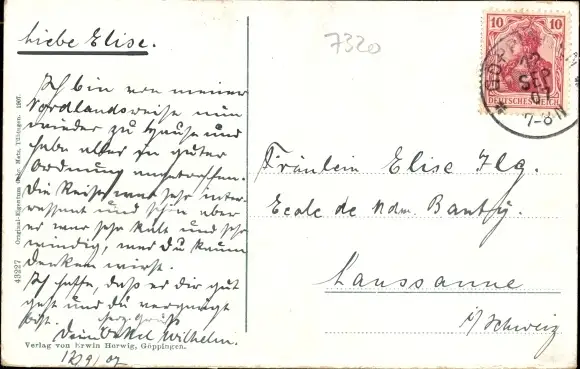 Liebe Elise.
Ich bin von meiner
Nordlandsreise nun
wieder zu Hause und
habe alles in guter
Ordnung angetroffen.
Die Reise war sehr inter-
ressant und schön aber
es war sehr kalt und sehr
windig, was du kaum
denken wirst.
Ich hoffe, daß es dir gut
geht und du vergnügt
bist. Herz. Gruß
Dein Onkel Wilhelm.
12/9/07
Verlag von Erwin Herwig, Göppingen.
43227 Original-Eigentum Metz, Tübingen. 1907.
7320
10 10
DEUTSCHES REICH
12
SEP
07
7-8 N
Fräulein Elise Ilg.
Ecole de Mdm. Banty.
Laussanne
i/Schweiz